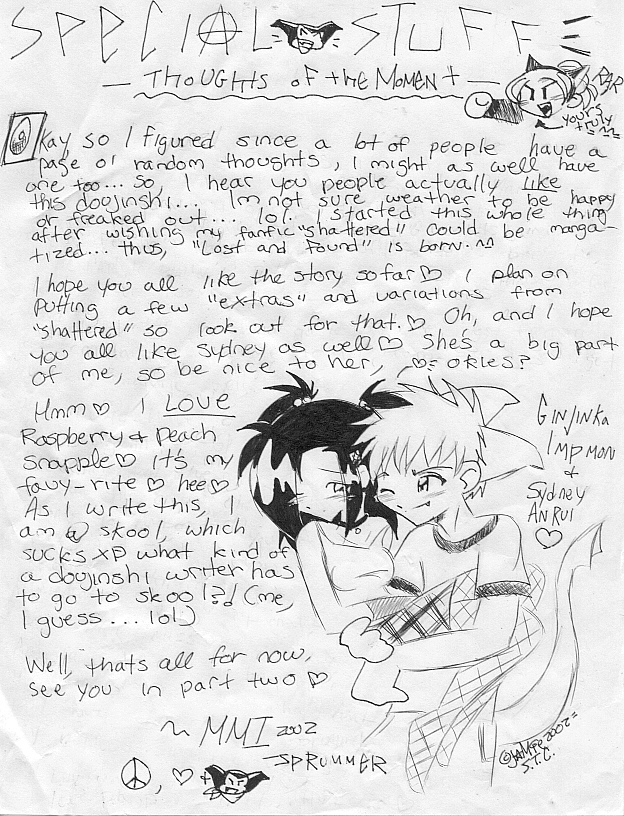 SPECIAL STUFF
— THOUGHTS OF the MOMENT —
RAR
yours
truly
Okay so I figured since a lot of people have a
page o' random thoughts, I might as well have
one too... So, I hear you people actually like
this doujinshi.... Im not sure weather to be happy
or freaked out... lol. I started this whole thing
after wishing my fanfic "shattered" could be manga-
tized... thus, "Lost and Found" is born. ^^
I hope you all like the story so far♡ I plan on
putting a few "extras" and variations from
"shattered" so look out for that.♡ Oh, and I hope
you all like Sydney as well♡ She's a big part
of me, so be nice to her, okies?
Hmm♡ I LOVE
Raspberry & Peach
snapple♡ it's my
favy-rite♡ hee♡
As I write this, I
am @ skool, which
sucks xp what kind of
a doujinshi writer has
to go to skool!?! (me,
I guess... lol)
Well, thats all for now,
see you in part two♡
~ MMI 2002
SPRUMMER
☮, ♡ +
GINJINKA
IMPMON
&
SYDNEY
ANRUI
♡
2002
S.T.C.